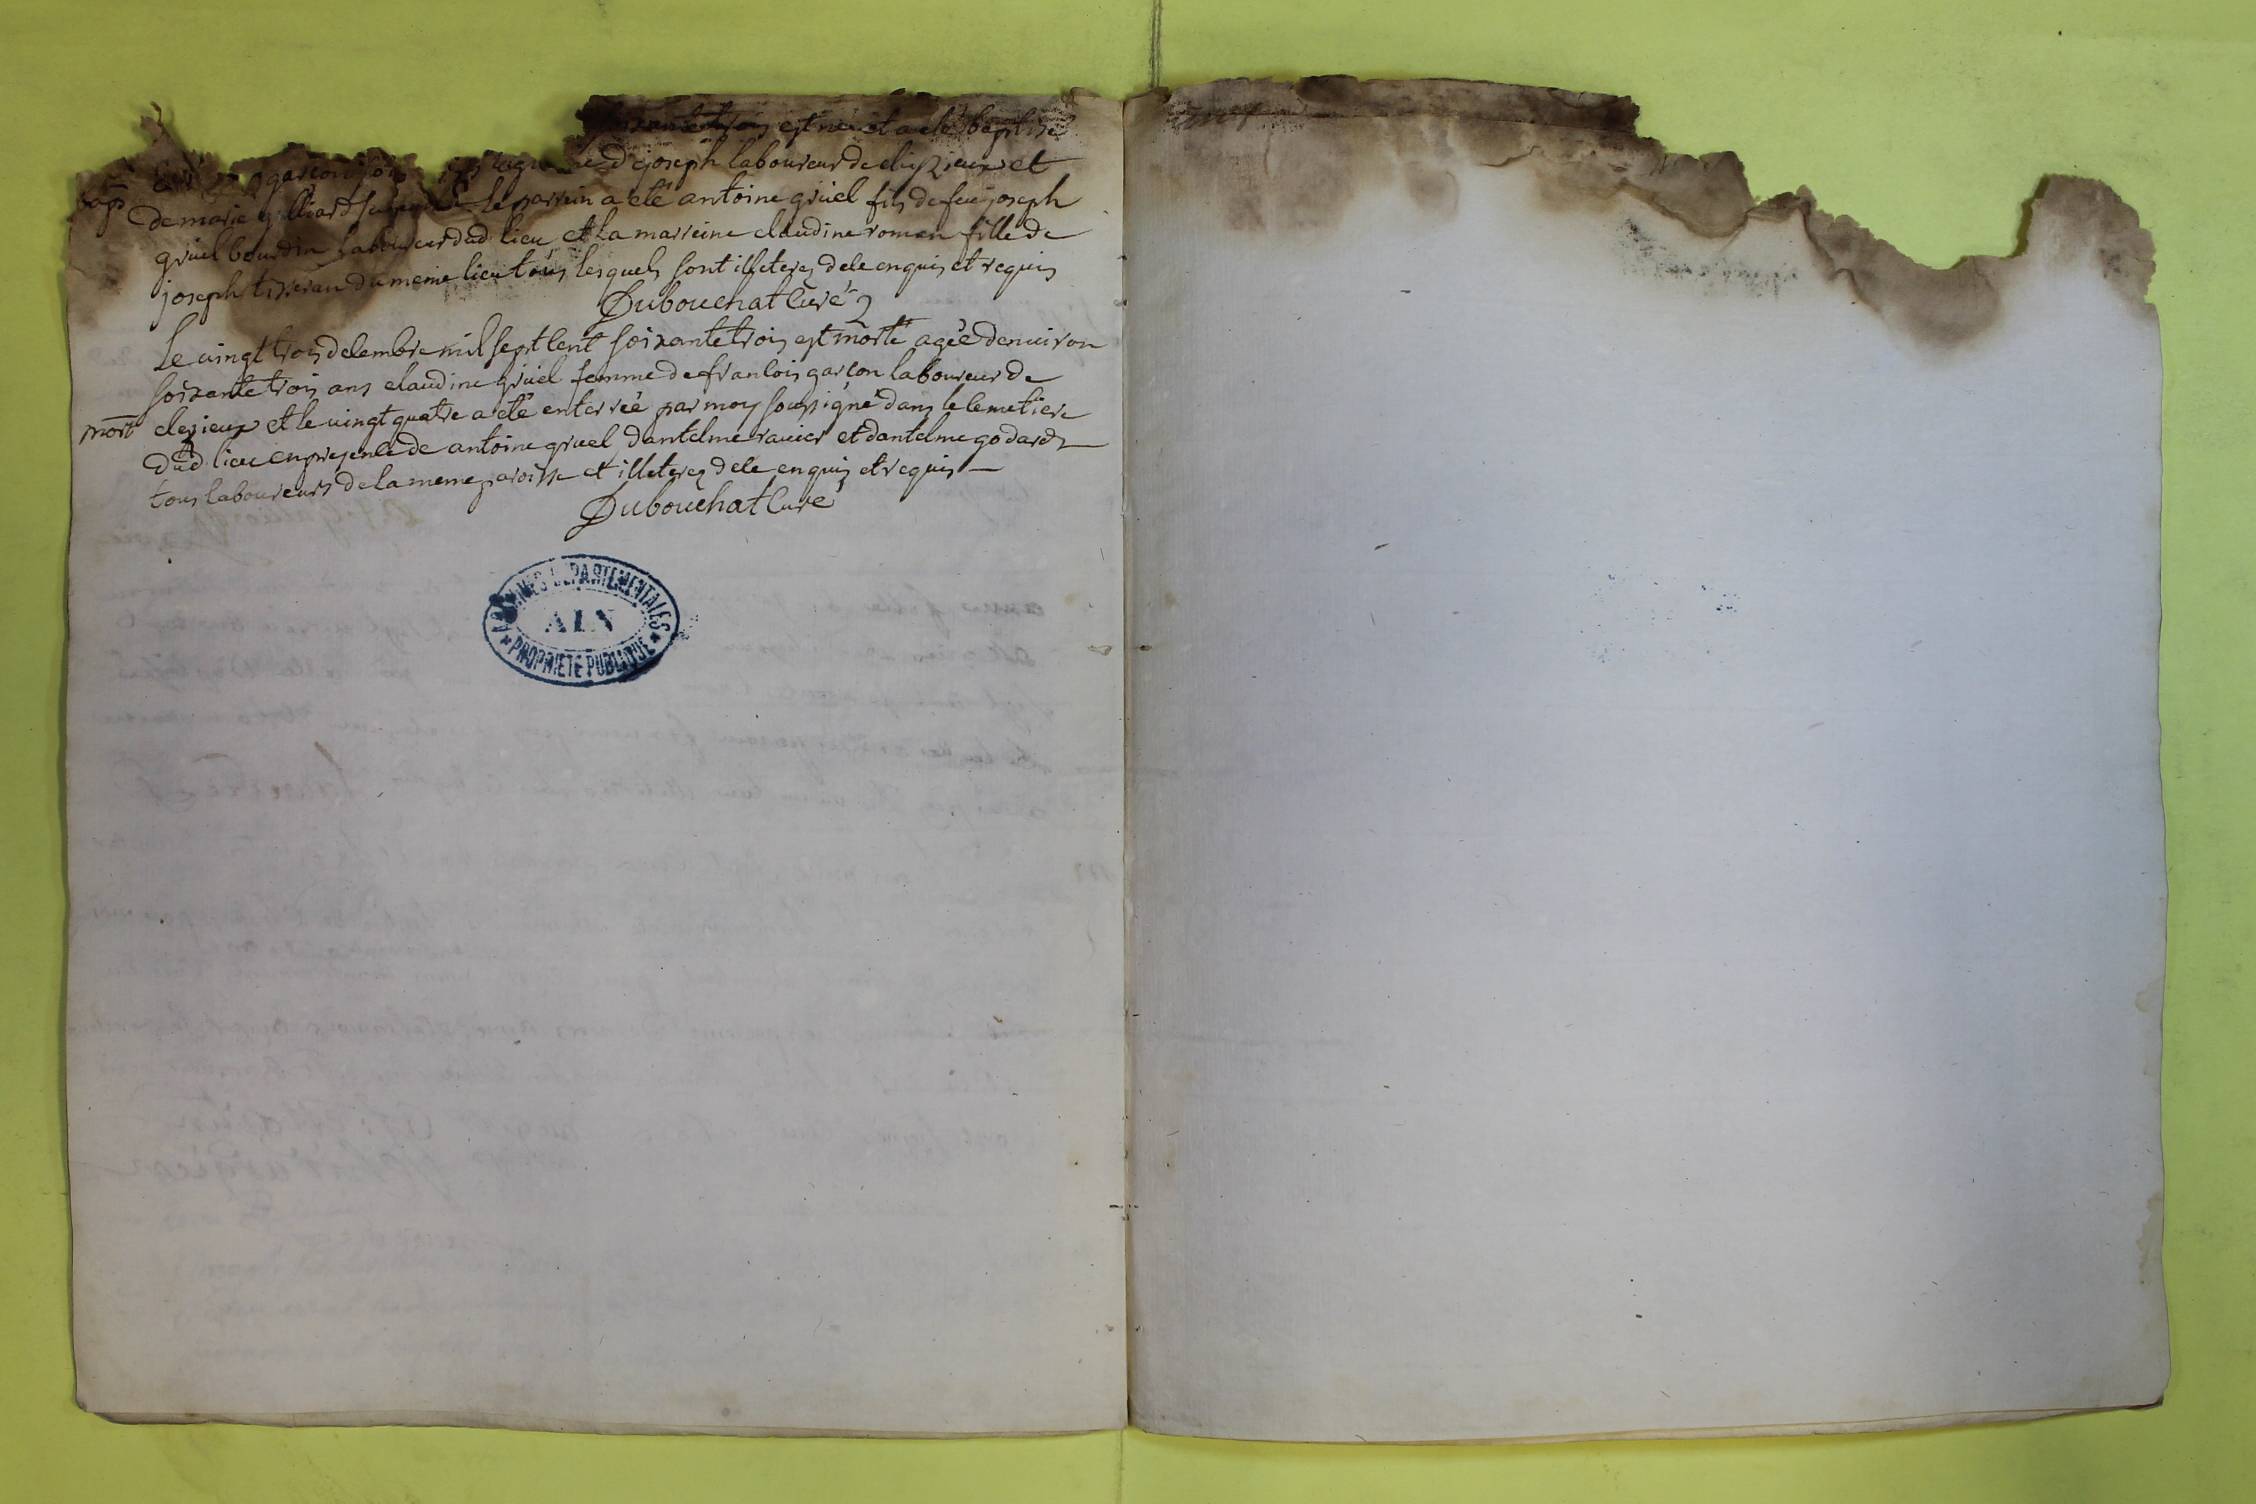 soixante trois est né et a eté baptisé
garçon joseph laboureur de cleyzieux et
bap de marie le parrein a eté antoine gruel fils de feu joseph
gruel bourdin laboureur dud lieu et la marreine claudine roman fille de
joseph tisseran du meme lieu tous lesquels sont illeteres de ce enquis et requis
Dubouchat Curé
Le vingt trois decembre mil sept cent soixante trois est morte agèe denviron
soixante trois ans claudine gruel femme de francois garcon laboureur de
mort clezieux et le vingt quatre a eté enterrée par moy soussigné dans le cemetiere
dud lieu en presence de antoine gruel dantelme ravier et dantelme godard
tous laboureurs de la meme paroisse et illeteres de ce enquis et requis
Dubouchat Curé
ARCHIVES DEPARTEMENTALES
AIN
PROPRIETE PUBLIQUE